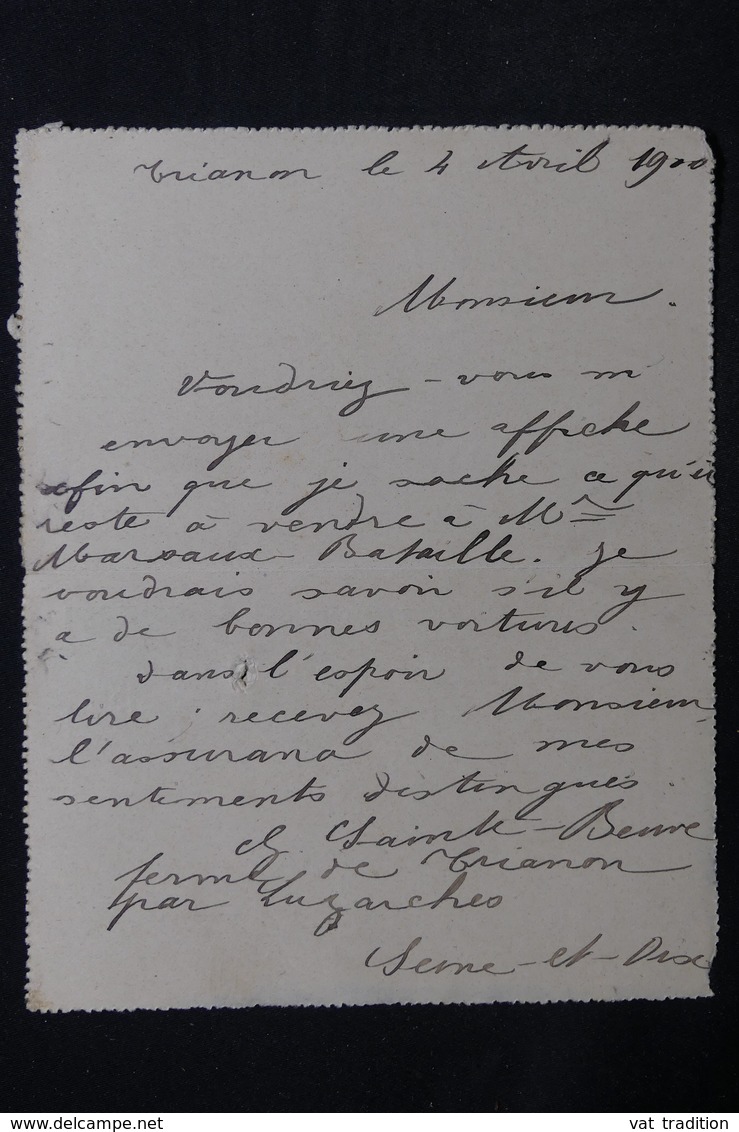 Trianon le 4 Avril 1900
Monsieur.
Voudriez-vous m'
envoyer une affiche
afin que je sache ce qu'il
reste à vendre à Mme
Marsaux-Bataille. Je
voudrais savoir s'il y
a de bonnes voitures.
Dans l'espoir de vous
lire, recevez Monsieur
l'assurance de mes
sentiments distingués.
Sainte-Beuve
ferme de Trianon
par Luzarches
Seine-et-Oise
vat tradition